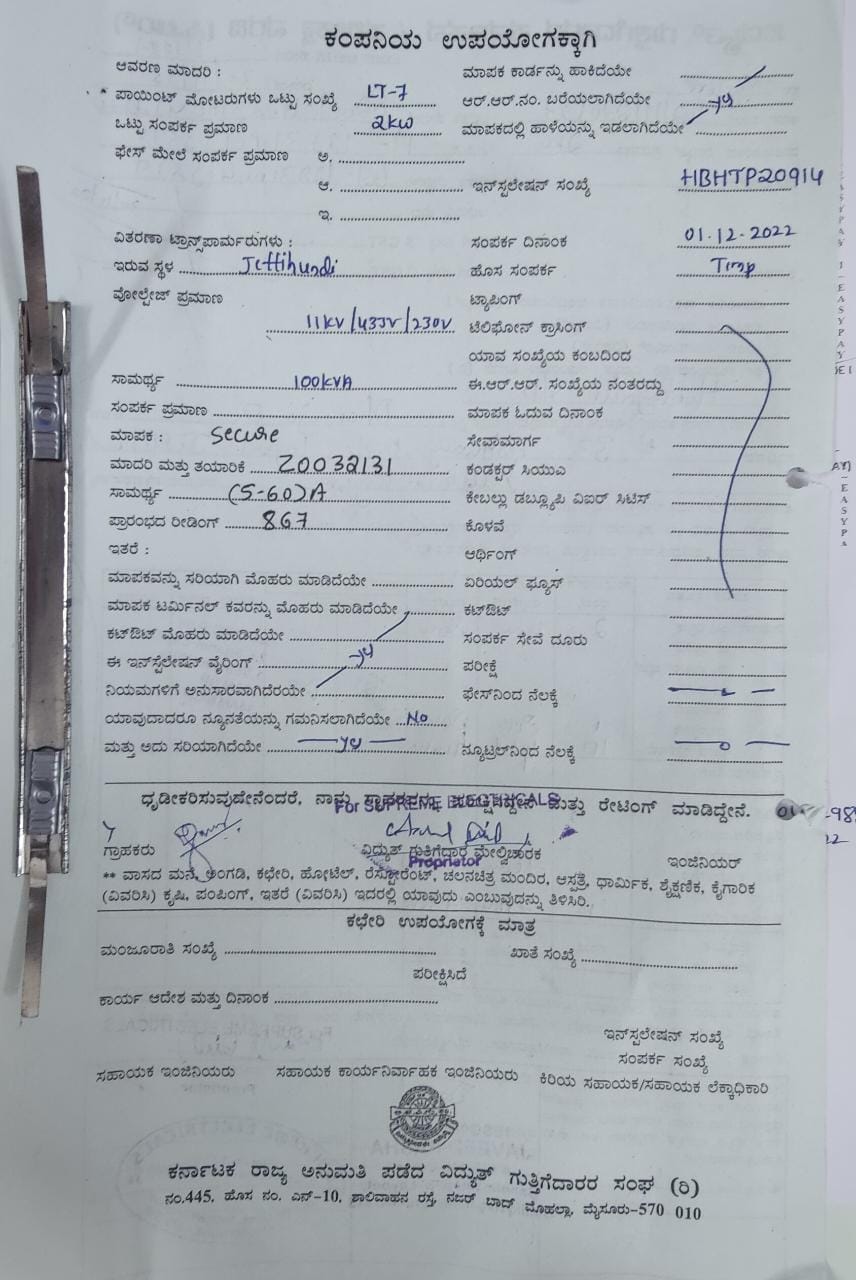 ಕಂಪನಿಯ ಉಪಯೋಗಕ್ಕಾಗಿ
ಆವರಣ ಮಾದರಿ : ಮಾಪಕ ಕಾರ್ಡನ್ನು ಹಾಕಿದೆಯೇ
* ಪಾಯಿಂಟ್ ಮೋಟರುಗಳು ಒಟ್ಟು ಸಂಖ್ಯೆ LT-7 ಆರ್.ಆರ್.ನಂ. ಬರೆಯಲಾಗಿದೆಯೇ
ಒಟ್ಟು ಸಂಪರ್ಕ ಪ್ರಮಾಣ 2kw ಮಾಪಕದಲ್ಲಿ ಹಾಳೆಯನ್ನು ಇಡಲಾಗಿದೆಯೇ
ಫೇಸ್ ಮೇಲೆ ಸಂಪರ್ಕ ಪ್ರಮಾಣ ಅ.
ಆ. ಇನ್‌ಸ್ಟಲೇಷನ್ ಸಂಖ್ಯೆ HBHTP20914
ಇ.
ವಿತರಣಾ ಟ್ರಾನ್ಸ್‌ಪಾರ್ಮರುಗಳು : ಸಂಪರ್ಕ ದಿನಾಂಕ 01-12-2022
ಇರುವ ಸ್ಥಳ Jettihundi ಹೊಸ ಸಂಪರ್ಕ Temp
ವೋಲ್ಟೇಜ್ ಪ್ರಮಾಣ ಟ್ಯಾಪಿಂಗ್
11kv/433v/230v ಟೆಲಿಫೋನ್ ಕ್ರಾಸಿಂಗ್
ಯಾವ ಸಂಖ್ಯೆಯ ಕಂಬದಿಂದ
ಸಾಮರ್ಥ್ಯ 100kVA ಈ.ಆರ್.ಆರ್. ಸಂಖ್ಯೆಯ ನಂತರದ್ದು
ಸಂಪರ್ಕ ಪ್ರಮಾಣ ಮಾಪಕ ಓದುವ ದಿನಾಂಕ
ಮಾಪಕ : secure ಸೇವಾಮಾರ್ಗ
ಮಾದರಿ ಮತ್ತು ತಯಾರಿಕೆ Z0032131 ಕಂಡಕ್ಟರ್ ಸಿಯುಎ
ಸಾಮರ್ಥ್ಯ (5-60)A ಕೇಬಲ್ಲು ಡಬ್ಲ್ಯೂಪಿ ವಿಐರ್ ಸಿಟಿಸ್
ಪ್ರಾರಂಭದ ರೀಡಿಂಗ್ 867 ಕೊಳವೆ
ಇತರೆ : ಆರ್ಥಿಂಗ್
ಮಾಪಕವನ್ನು ಸರಿಯಾಗಿ ಮೊಹರು ಮಾಡಿದೆಯೇ ಏರಿಯಲ್ ಫ್ಯೂಸ್
ಮಾಪಕ ಟರ್ಮಿನಲ್ ಕವರನ್ನು ಮೊಹರು ಮಾಡಿದೆಯೇ ಕಟ್‌ಔಟ್
ಕಟ್‌ಔಟ್ ಮೊಹರು ಮಾಡಿದೆಯೇ ಸಂಪರ್ಕ ಸೇವೆ ದೂರು
ಈ ಇನ್‌ಸ್ಟೆಲೇಷನ್ ವೈರಿಂಗ್ ಪರೀಕ್ಷೆ
ನಿಯಮಗಳಿಗೆ ಅನುಸಾರವಾಗಿದೆರಯೇ ಫೇಸ್‌ನಿಂದ ನೆಲಕ್ಕೆ
ಯಾವುದಾದರೂ ನ್ಯೂನತೆಯನ್ನು ಗಮನಿಸಲಾಗಿದೆಯೇ No
ಮತ್ತು ಅದು ಸರಿಯಾಗಿದೆಯೇ ನ್ಯೂಟ್ರಲ್‌ನಿಂದ ನೆಲಕ್ಕೆ
ಧೃಡೀಕರಿಸುವುದೇನೆಂದರೆ, ನಾವು ಮತ್ತು ರೇಟಿಂಗ್ ಮಾಡಿದ್ದೇನೆ.
For SUPREME ELECTRICALS
ಗ್ರಾಹಕರು ವಿದ್ಯುತ್ ಗುತ್ತಿಗೆದಾರ ಮೇಲ್ವಿಚಾರಕ ಇಂಜಿನಿಯರ್
Proprietor
** ವಾಸದ ಮನೆ, ಅಂಗಡಿ, ಕಛೇರಿ, ಹೋಟೆಲ್, ರೆಸ್ಟೋರೆಂಟ್, ಚಲನಚಿತ್ರ ಮಂದಿರ, ಆಸ್ಪತ್ರೆ, ಧಾರ್ಮಿಕ, ಶೈಕ್ಷಣಿಕ, ಕೈಗಾರಿಕ
(ವಿವರಿಸಿ) ಕೃಷಿ, ಪಂಪಿಂಗ್, ಇತರೆ (ವಿವರಿಸಿ) ಇದರಲ್ಲಿ ಯಾವುದು ಎಂಬುವುದನ್ನು ತಿಳಿಸಿರಿ.
ಕಛೇರಿ ಉಪಯೋಗಕ್ಕೆ ಮಾತ್ರ
ಮಂಜೂರಾತಿ ಸಂಖ್ಯೆ ಖಾತೆ ಸಂಖ್ಯೆ
ಪರೀಕ್ಷಿಸಿದೆ
ಕಾರ್ಯ ಆದೇಶ ಮತ್ತು ದಿನಾಂಕ
ಇನ್‌ಸ್ಟಲೇಷನ್ ಸಂಖ್ಯೆ
ಸಂಪರ್ಕ ಸಂಖ್ಯೆ
ಸಹಾಯಕ ಇಂಜಿನಿಯರು ಸಹಾಯಕ ಕಾರ್ಯನಿರ್ವಾಹಕ ಇಂಜಿನಿಯರು ಕಿರಿಯ ಸಹಾಯಕ/ಸಹಾಯಕ ಲೆಕ್ಕಾಧಿಕಾರಿ
ಕರ್ನಾಟಕ ರಾಜ್ಯ ಅನುಮತಿ ಪಡೆದ ವಿದ್ಯುತ್ ಗುತ್ತಿಗೆದಾರರ ಸಂಘ (ರಿ)
ನಂ.445, ಹೊಸ ನಂ. ಎನ್-10, ಶಾಲಿವಾಹನ ರಸ್ತೆ, ನಜರ್ ಬಾದ್ ಮೊಹಲ್ಲಾ, ಮೈಸೂರು-570 010